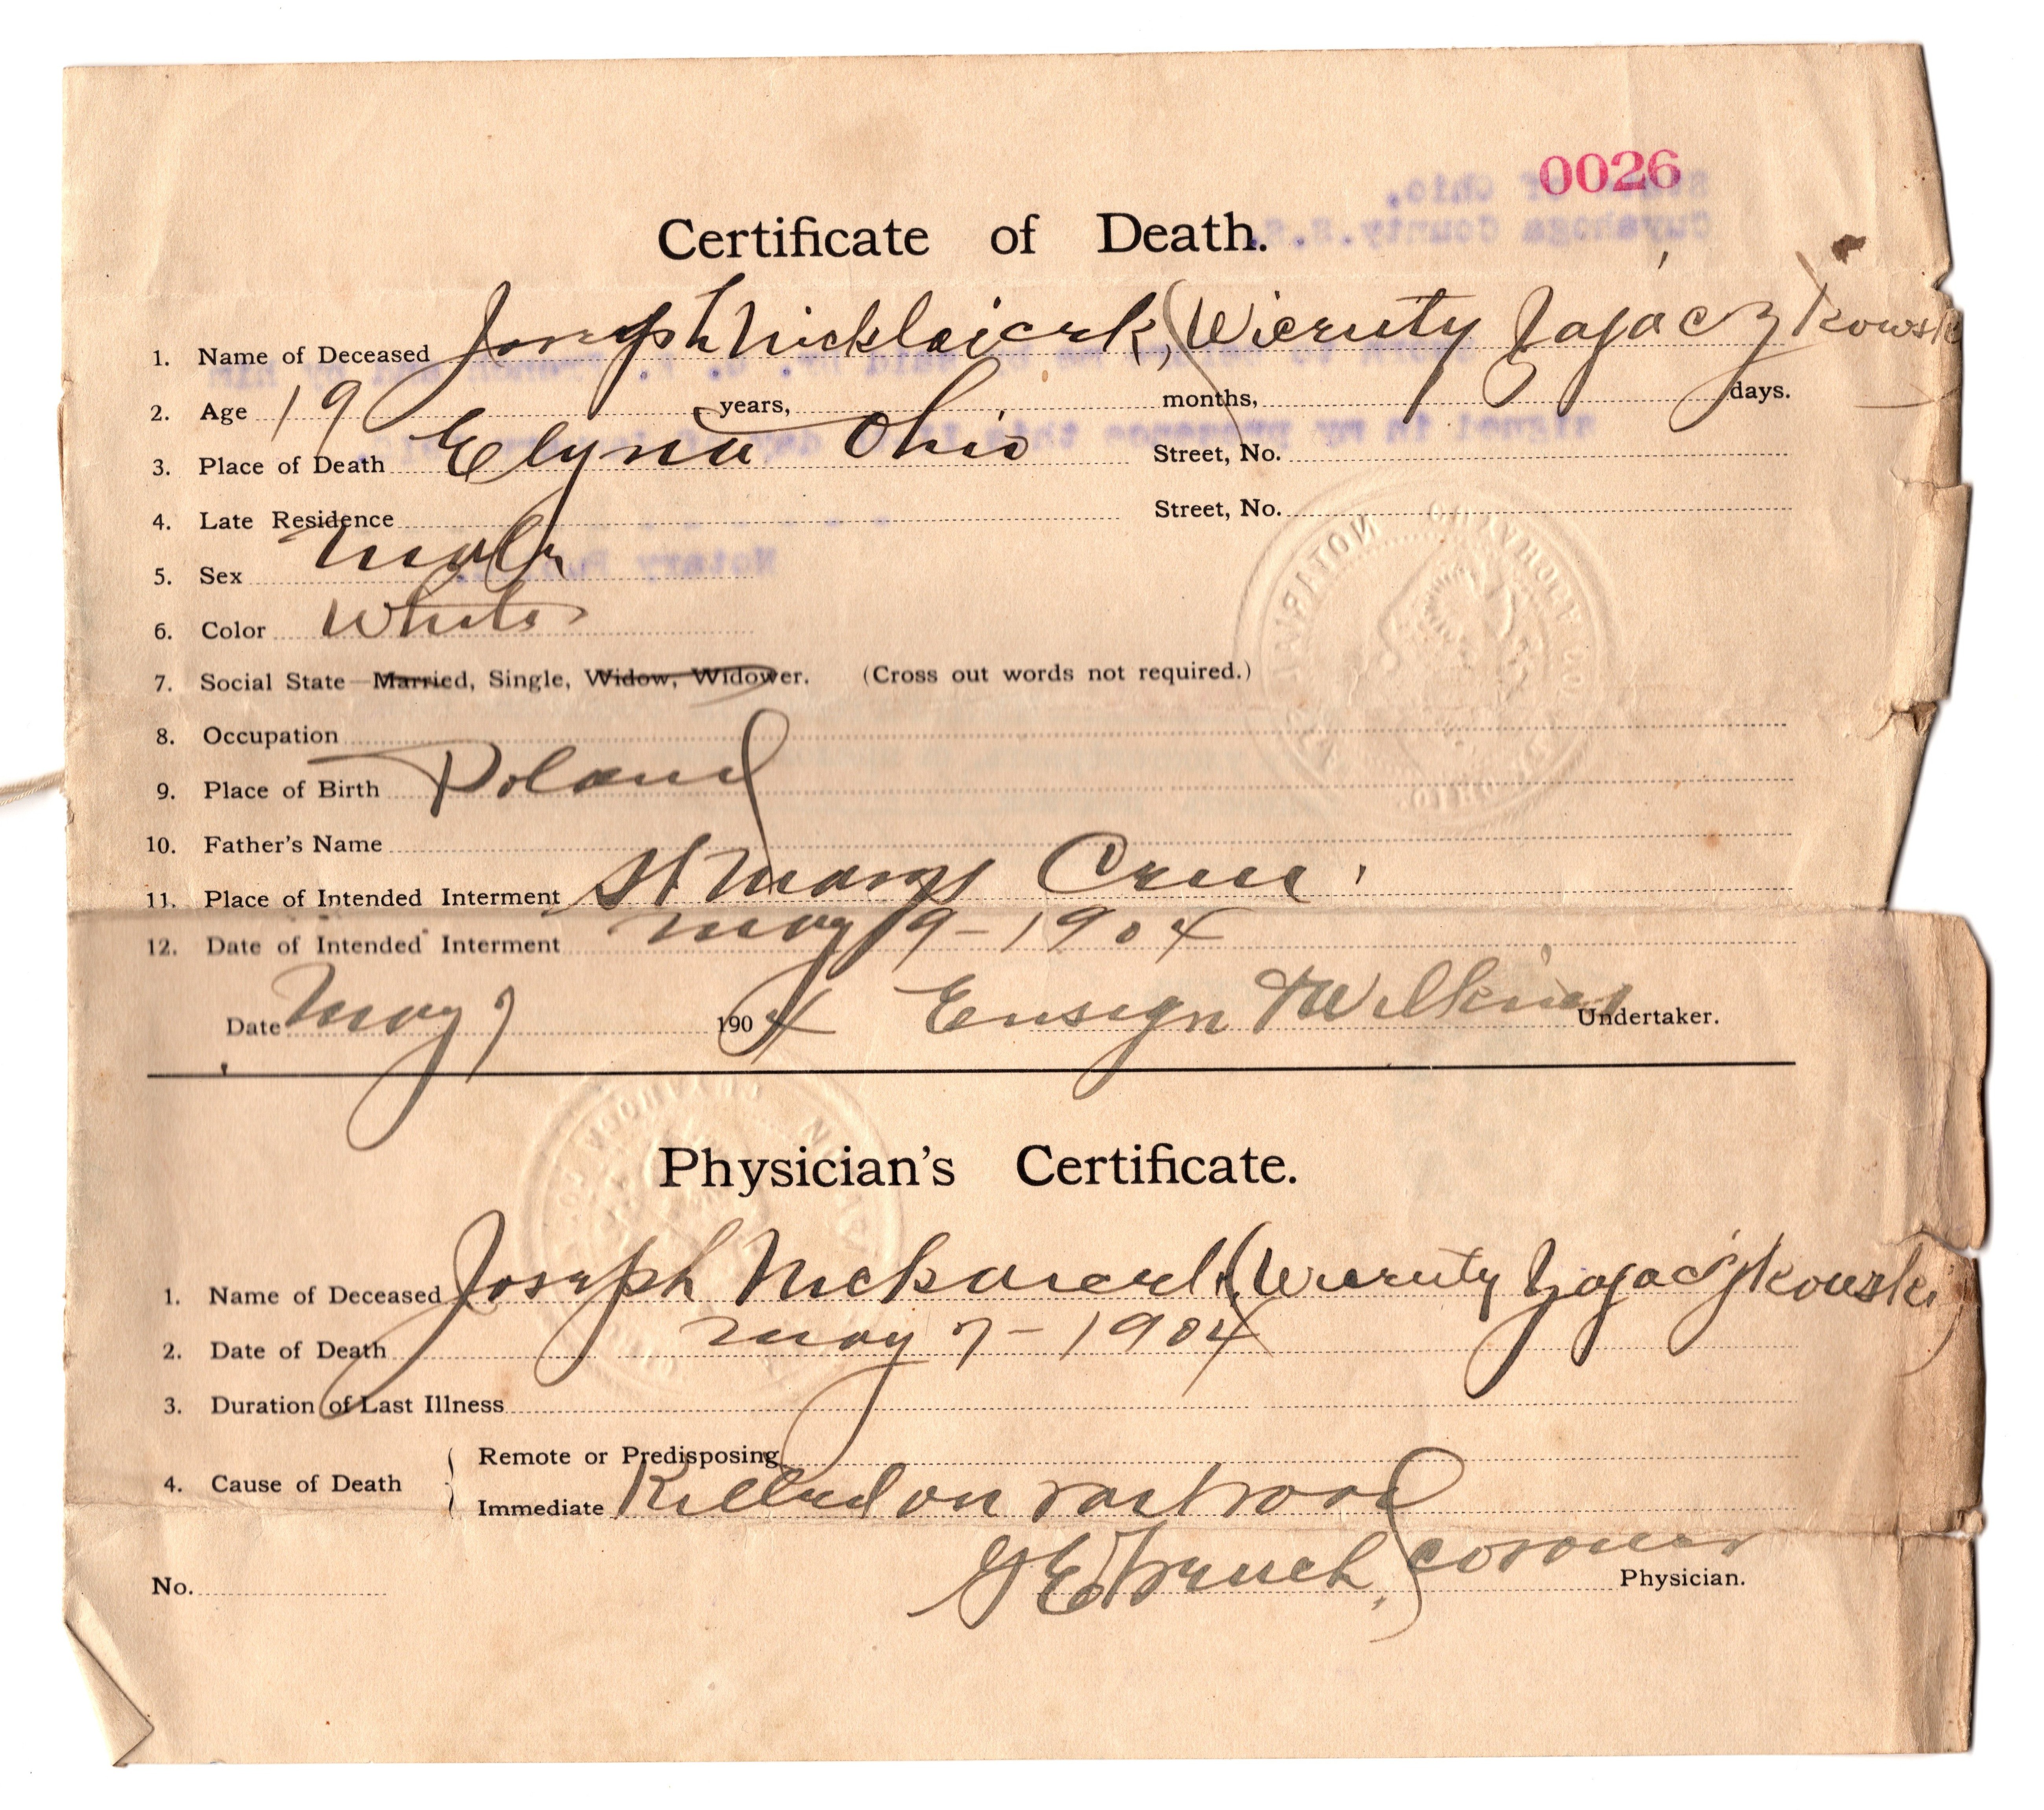 0026
State of Ohio,
Cuyahoga County. S.S.
Certificate of Death.
1. Name of Deceased Joseph Nicklaiczk, (Wieruty Zajaczkowski
2. Age 19 years, months, days.
3. Place of Death Elyria Ohio Street, No.
4. Late Residence Street, No.
5. Sex Male
Notary
6. Color White
7. Social State—Married, Single, Widow, Widower. (Cross out words not required.)
8. Occupation
9. Place of Birth Poland
10. Father's Name
11. Place of Intended Interment St Marys Cem.
12. Date of Intended Interment May 9-1904
Date May 7 1904 Ensign & Wilkins Undertaker.
Physician's Certificate.
1. Name of Deceased Joseph (Wieruty Zajaczkowski)
2. Date of Death May 7-1904
3. Duration of Last Illness
4. Cause of Death
Remote or Predisposing
Immediate Killed on railroad
G E French, Coroner
No. Physician.